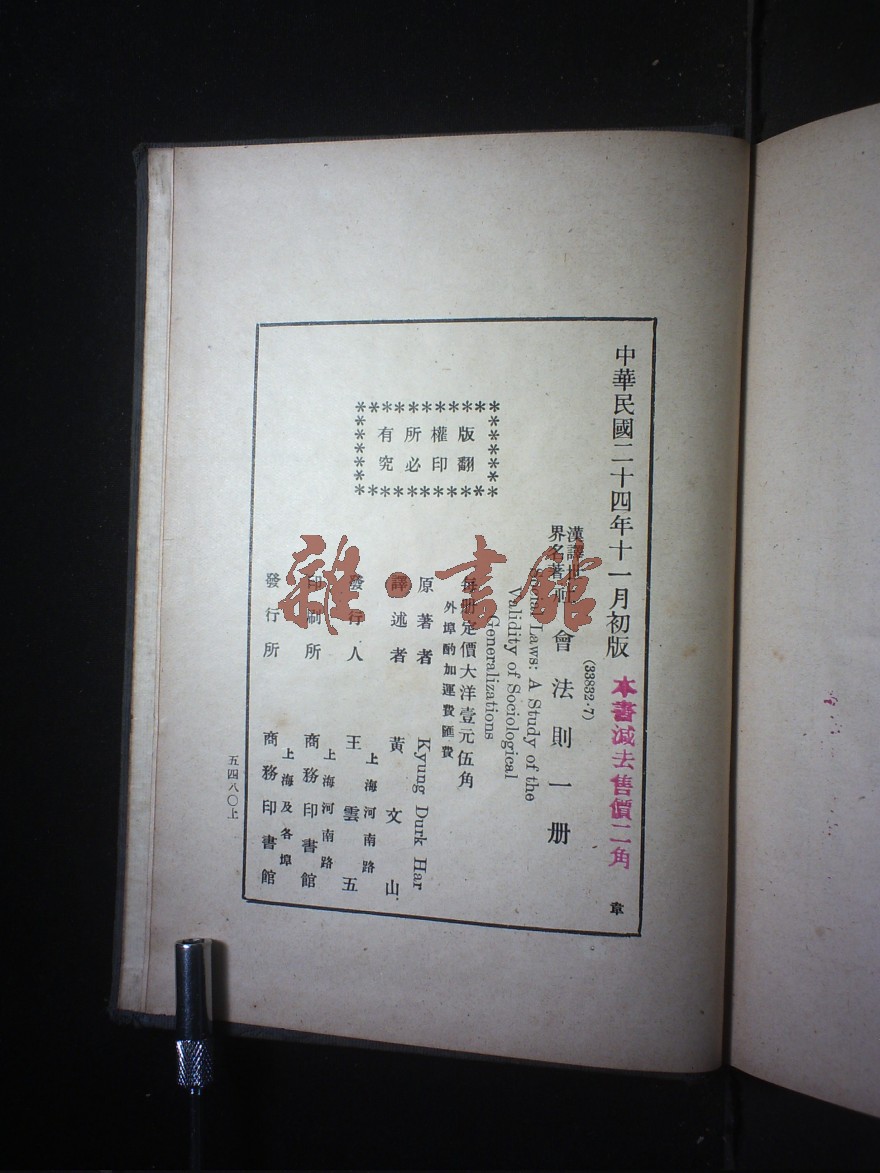 中華民國二十四年十一月初版
本書減去售價二角
章
(33832·7)
漢譯世
界名著
社會法則一册
Social Laws: A Study of the
Validity of Sociological
Generalizations
每册定價大洋壹元伍角
外埠酌加運費匯費
原著者 Kyung Durk Har
譯述者 黃文山
發行人 王雲五
上海河南路
印刷所 商務印書館
上海河南路
發行所 商務印書館
上海及各埠
版權所有
翻印必究
五四八〇上
雜·書館